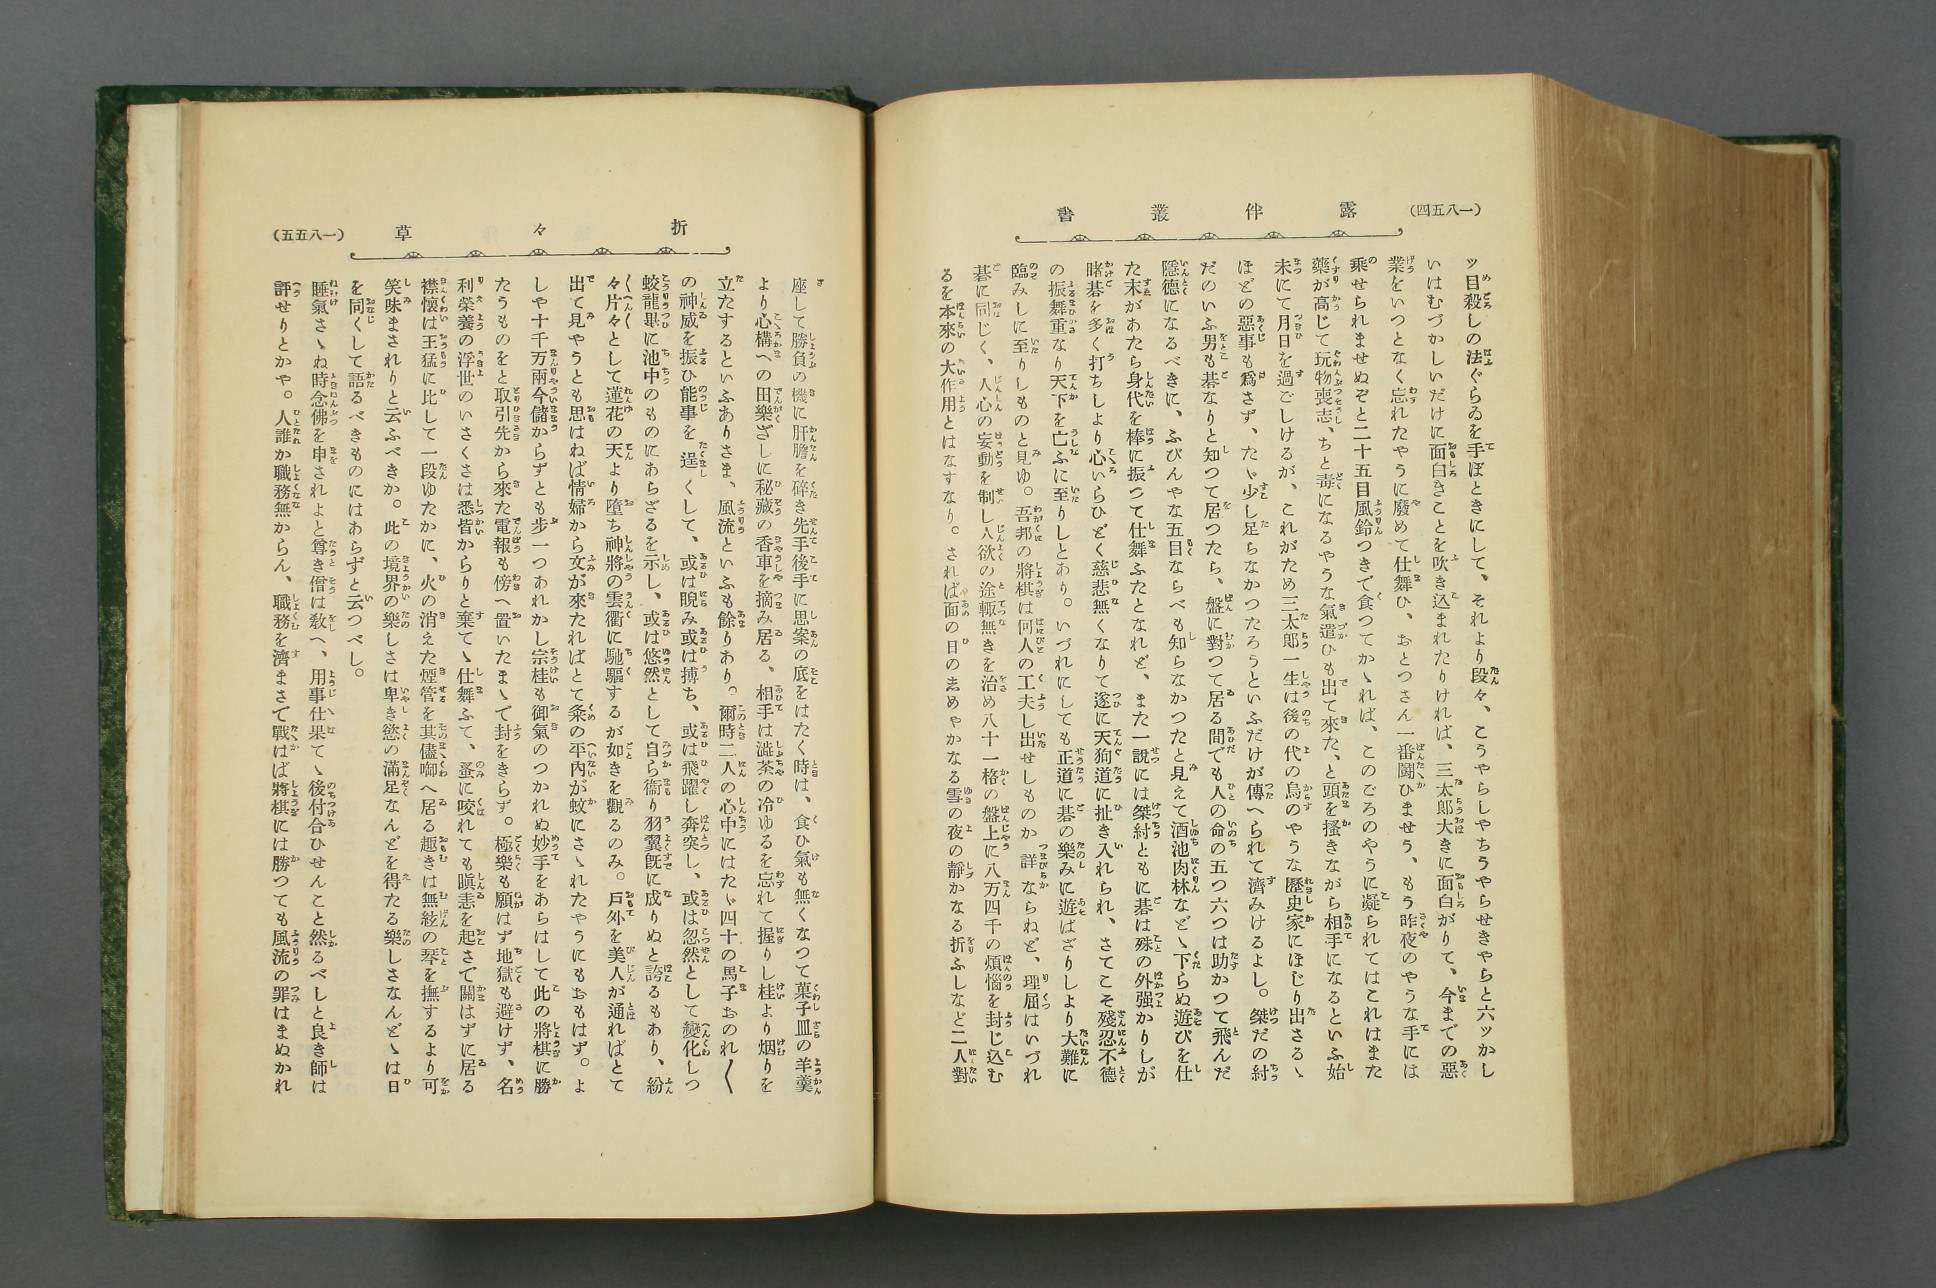 (一八五四) 露伴叢書
ッ目殺しの法ぐらゐを手ほときにして、それより段々、こうやらしやちうやらせきやらと六ッかし
いはむづかしいだけに面白きことを吹き込まれたりければ、三太郎大きに面白がりて、今までの惡
業をいつとなく忘れたやうに廢めて仕舞ひ、おとつさん一番鬪ひませう、もう昨夜のやうな手には
乘せられませぬぞと二十五目風鈴つきで食つてかゝれば、このごろのやうに凝られてはこれはまた
藥が高じて玩物喪志、ちと毒になるやうな氣遣ひも出て來た、と頭を搔きながら相手になるといふ始
末にて月日を過ごしけるが、これがため三太郎一生は後の代の烏のやうな歷史家にほじり出さるゝ
ほどの惡事も爲さず、たゞ少し足らなかつたろうといふだけが傳へられて濟みけるよし。桀だの紂
だのいふ男も碁なりと知つて居つたら、盤に對つて居る間でも人の命の五つ六つは助かつて飛んだ
隱德になるべきに、ふびんやな五目ならべも知らなかつたと見えて酒池肉林などゝ下らぬ遊びを仕
た末があたら身代を棒に振つて仕舞ふたとなれど、また一說には桀紂ともに碁は殊の外强かりしが
賭碁を多く打ちしより心いらひどく慈悲無くなりて遂に天狗道に扯き入れられ、さてこそ殘忍不德
の振舞重なり天下を亡ふに至りしとあり。いづれにしても正道に碁の樂みに遊ばざりしより大難に
臨みしに至りしものと見ゆ。吾邦の將棋は何人の工夫し出せしものか詳ならねど、理屈はいづれ
碁に同じく、人心の妄動を制し人欲の途轍無きを治め八十一格の盤上に八万四千の煩惱を封じ込む
るを本來の大作用とはなすなり。されば面の日の志めやかなる雪の夜の靜かなる折ふしなど二人對
折々草 (一八五五)
座して勝負の機に肝膽を碎き先手後手に思案の底をはたく時は、食ひ氣も無くなつて菓子皿の羊羹
より心構への田樂ざしに秘藏の香車を摘み居る、相手は澁茶の冷ゆるを忘れて握りし桂より烟りを
立たするといふありさま、風流といふも餘りあり。爾時二人の心中にはたゞ四十の馬子おのれ〱
の神威を振ひ能事を逞くして、或は睨み或は搏ち、或は飛躍し奔突し、或は忽然として變化しつ
蛟龍畢に池中のものにあらざるを示し、或は悠然として自ら衞り羽翼旣に成りぬと誇るもあり、紛
々片々として蓮花の天より墮ち神將の雲衢に馳驅するが如きを觀るのみ。戶外を美人が通ればとて
出て見やうとも思はねば情婦から文が來たればとて粂の平內が蚊にさゝれたやうにもおもはず。よ
しや十千万兩今儲からずとも步一つあれかし宗桂も御氣のつかれぬ妙手をあらはして此の將棋に勝
たうものをと取引先から來た電報も傍へ置いたまゝで封をきらず。極樂も願はず地獄も避けず、名
利榮養の浮世のいさくさは悉皆からりと棄てゝ仕舞ふて、蚤に咬れても瞋恚を起さで關はずに居る
襟懷は王猛に比して一段ゆたかに、火の消えた煙管を其儘啣へ居る趣きは無絃の琴を撫するより可
笑味まされりと云ふべきか。此の境界の樂しさは卑き慾の滿足なんどを得たる樂しさなんどゝは日
を同くして語るべきものにはあらずと云つべし。
睡氣さゝね時念佛を申されよと尊き僧は敎へ、用事仕果てゝ後付合ひせんこと然るべしと良き師は
評せりとかや。人誰か職務無からん、職務を濟まさで戰はば將棋には勝つても風流の罪はまぬかれ